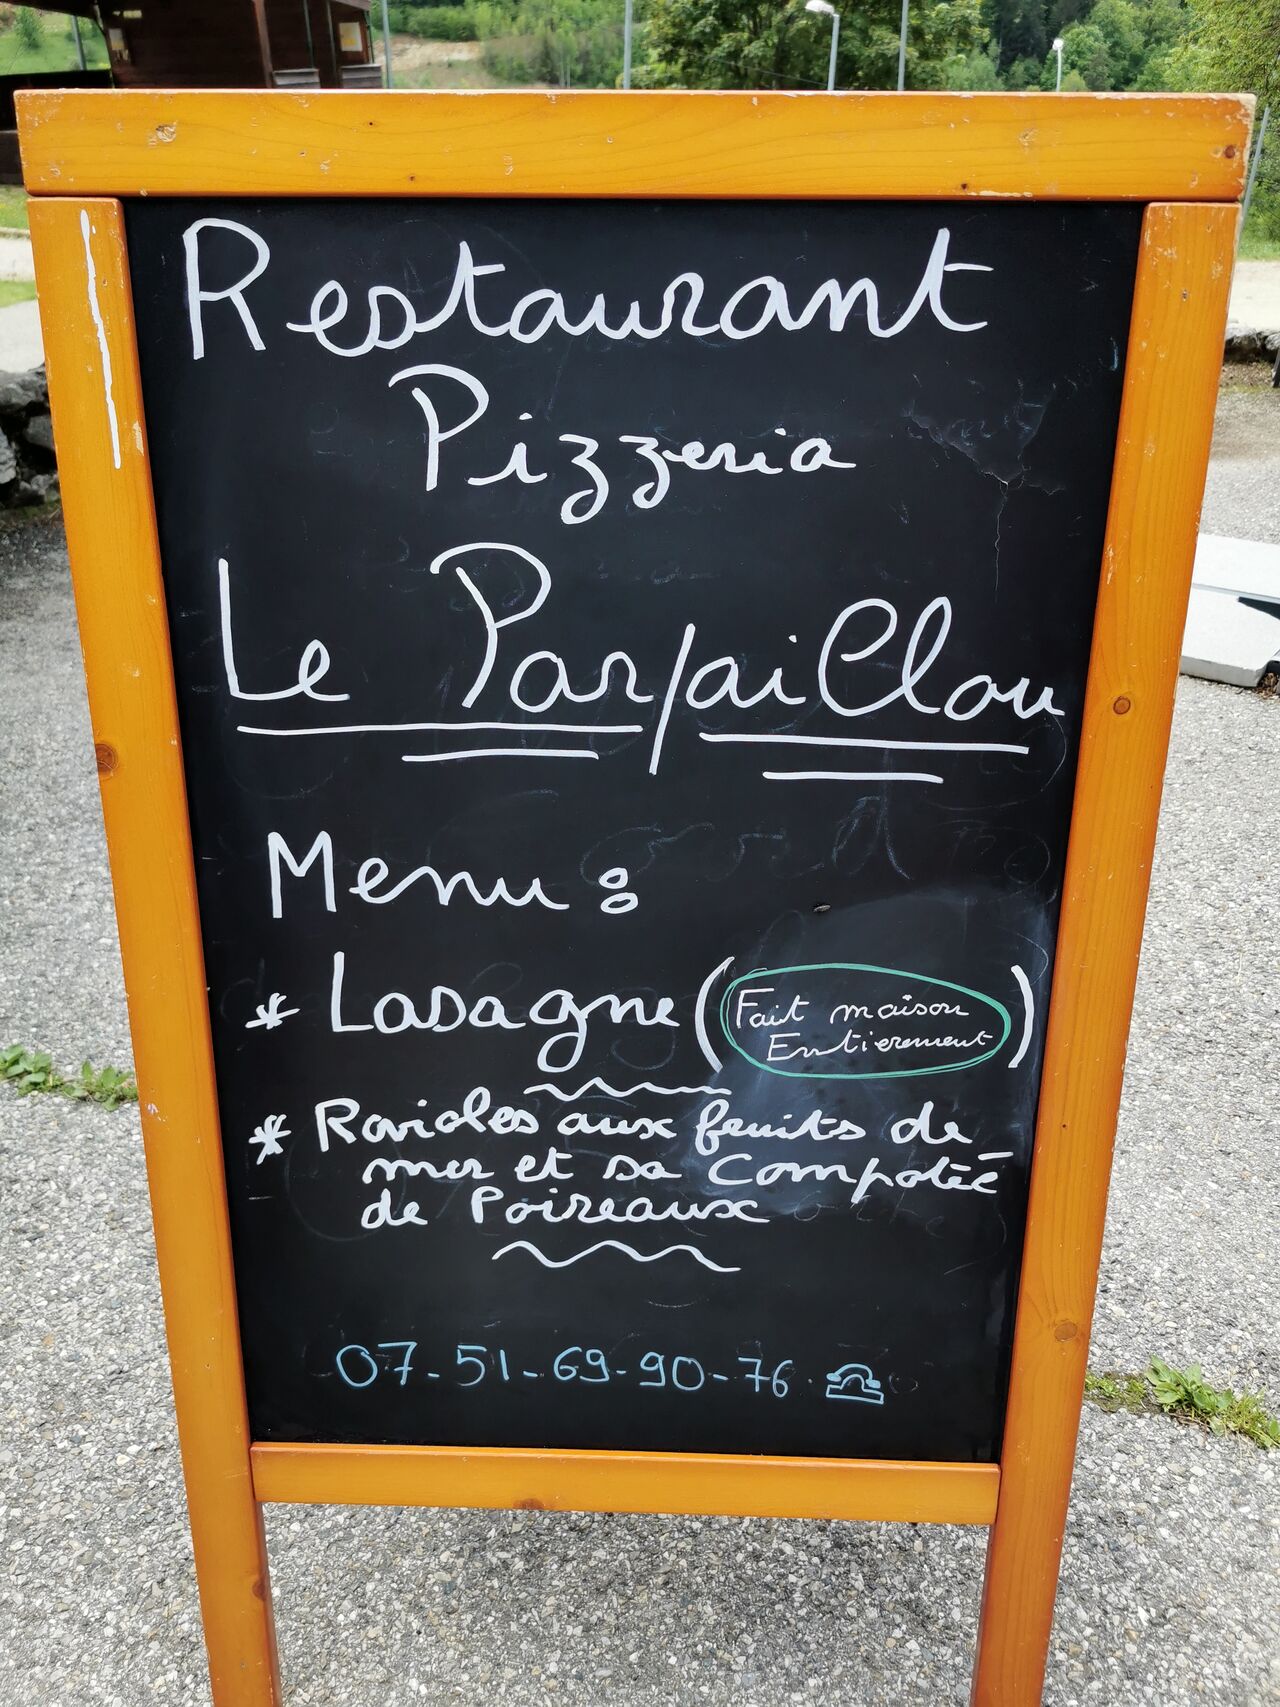 Restaurant
Pizzeria
Le Parpaillou
Menu :
* Lasagne (Fait maison
Entierement)
* Ravioles aux fruits de
mer et sa Compotée
de Poireaux
07-51-69-90-76